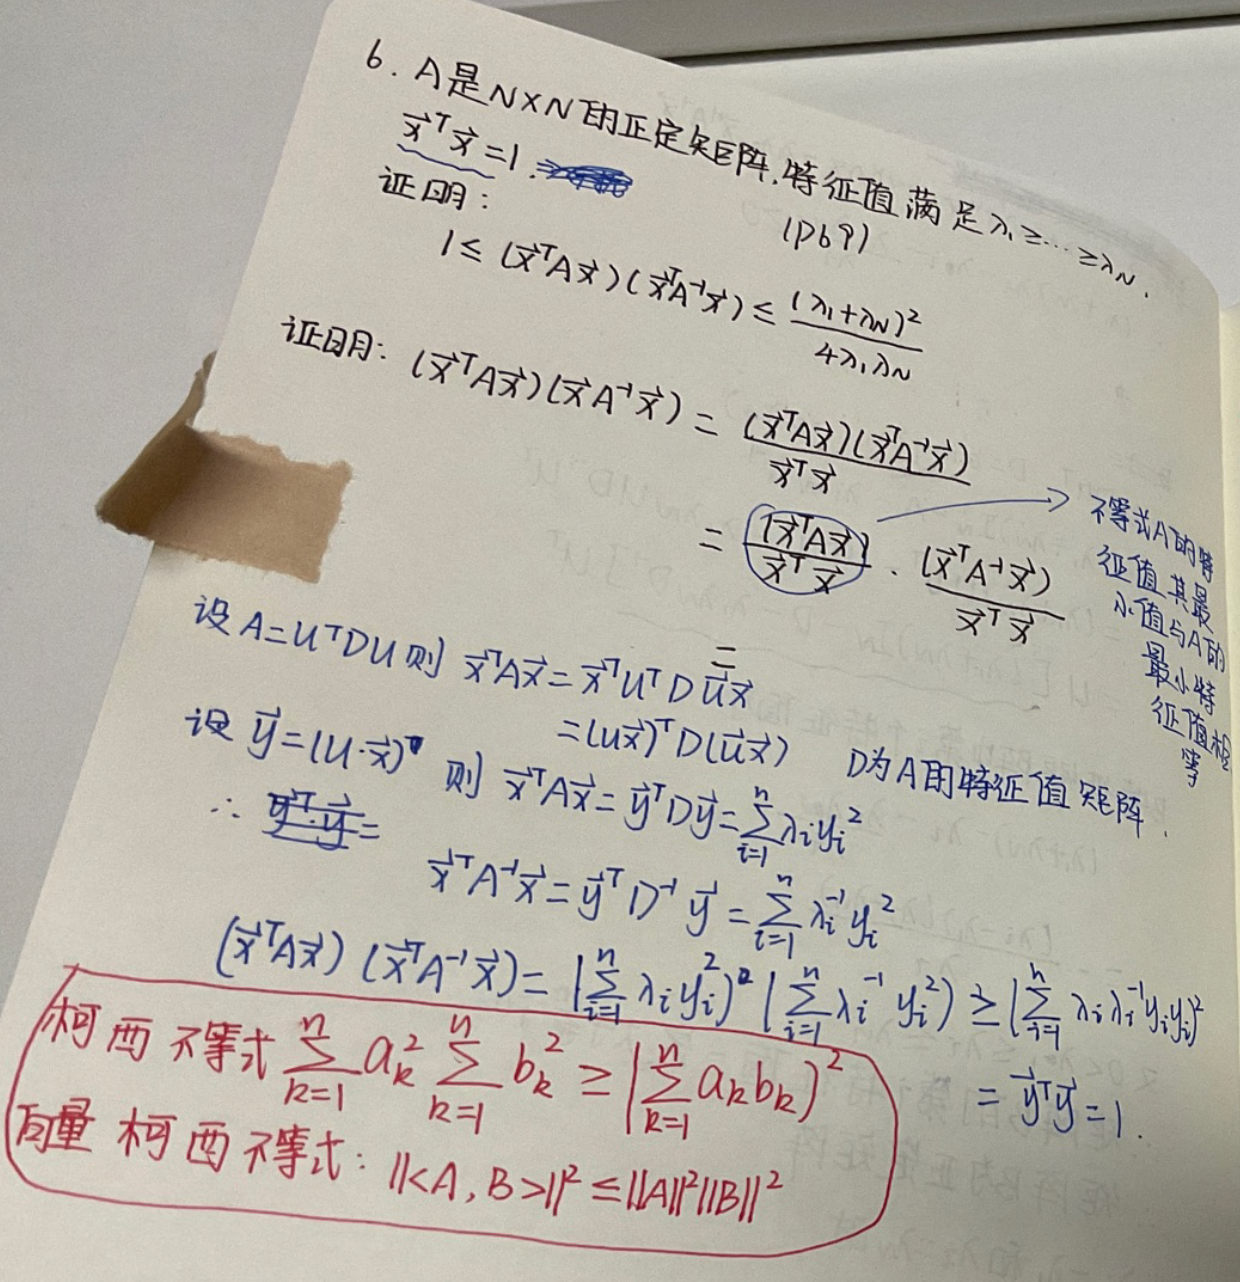 6. A是N×N的正定矩阵,特征值满足λ₁≥…≥λN.
x⃗ᵀx⃗=1.
(P69)
证明:
1≤(x⃗ᵀAx⃗)(x⃗ᵀA⁻¹x⃗)≤(λ₁+λN)²/4λ₁λN
证明: (x⃗ᵀAx⃗)(x⃗A⁻¹x⃗)=(x⃗ᵀAx⃗)(x⃗ᵀA⁻¹x⃗)/x⃗ᵀx⃗
=(x⃗ᵀAx⃗)/x⃗ᵀx⃗·(x⃗ᵀA⁻¹x⃗)/x⃗ᵀx⃗
不等式A的特
征值其最
小值与A的
最小特
征值相
等
=
设A=UᵀDU则 x⃗ᵀAx⃗=x⃗ᵀUᵀDu⃗x⃗
=(Ux⃗)ᵀD(u⃗x⃗) D为A的特征值矩阵.
设y⃗=(U·x⃗) 则 x⃗ᵀAx⃗=y⃗ᵀDy⃗=∑ⁿᵢ₌₁λᵢyᵢ²
∴ y⃗ᵀ·y⃗=
x⃗ᵀA⁻¹x⃗=y⃗ᵀD⁻¹y⃗=∑ⁿᵢ₌₁λᵢ⁻¹yᵢ²
(x⃗ᵀAx⃗)(x⃗ᵀA⁻¹x⃗)=(∑ⁿᵢ₌₁λᵢyᵢ²)(∑ⁿᵢ₌₁λᵢ⁻¹yᵢ²)≥(∑ⁿᵢ₌₁λᵢλᵢ⁻¹yᵢyᵢ)²
=y⃗ᵀy⃗=1.
柯西不等式∑ⁿₖ₌₁aₖ²∑ⁿₖ₌₁bₖ²≥(∑ⁿₖ₌₁aₖbₖ)²
向量柯西不等式: ||<A,B>||²≤||A||²||B||²